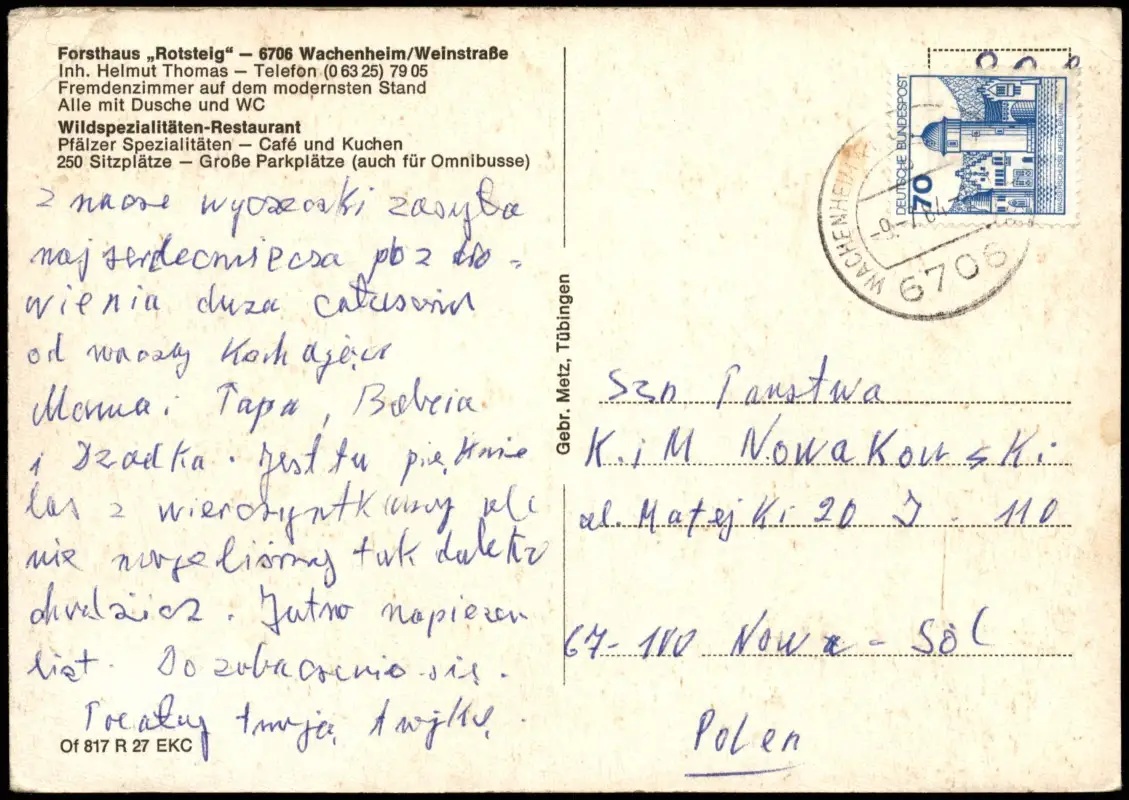 Forsthaus „Rotsteig“ — 6706 Wachenheim/Weinstraße
Inh. Helmut Thomas — Telefon (0 63 25) 79 05
Fremdenzimmer auf dem modernsten Stand
Alle mit Dusche und WC
Wildspezialitäten-Restaurant
Pfälzer Spezialitäten — Café und Kuchen
250 Sitzplätze — Große Parkplätze (auch für Omnibusse)
z nasze wycieczki zasyła
najserdeczniejsza pozdro=
wienia duza całusów
od waszy Kochający
Mama i Tapa, Babcia
i Dzadka. Jest tu pięknie
las z
nie tak daleko
chodzić. Jutro napiszem
list. Do zobaczenia się.
twoją
Of 817 R 27 EKC
Gebr. Metz, Tübingen
DEUTSCHE BUNDESPOST
70
WASSERSCHLOSS MESPELBRUNN
WACHENHEIM
-9.-7.84
6706
Szn Państwa
K. i M Nowakowski
ul. Matejki 20 J. 110
67-100 Nowa-Sól
Polen